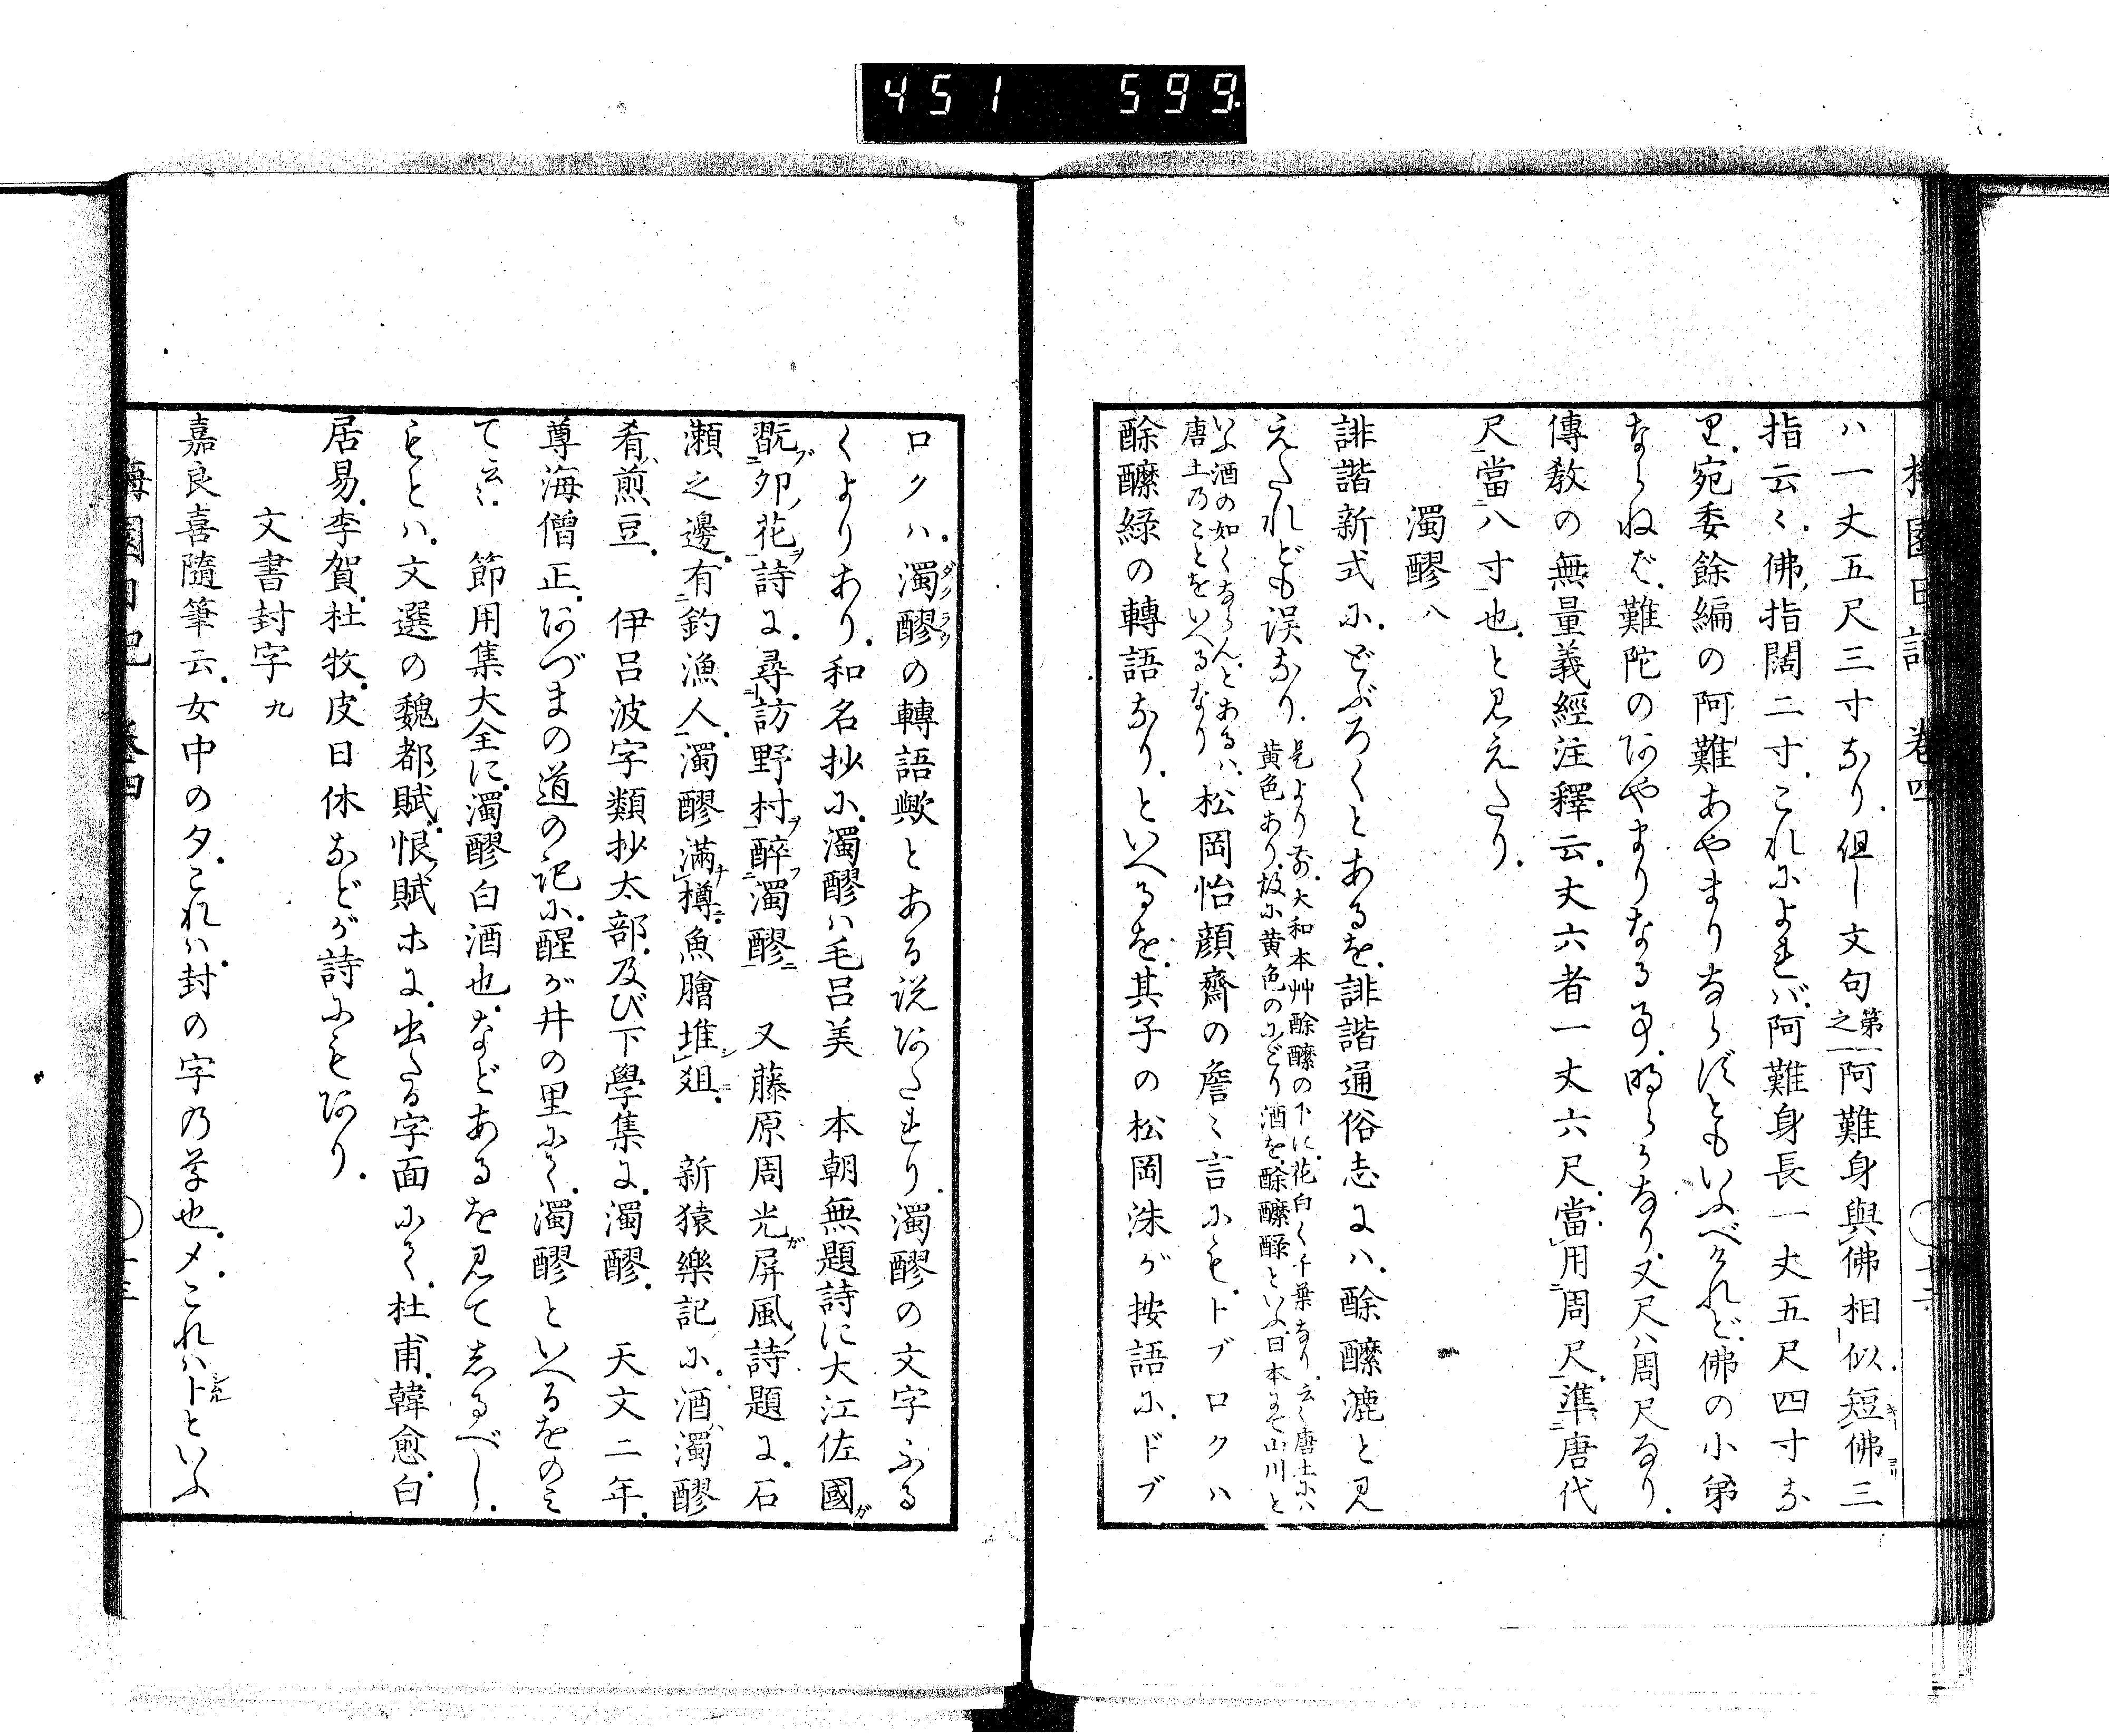 451 599
梅園日記 卷四
ハ一丈五尺三寸なり。但し文句第一之阿難身與佛相似。短佛三
指云々。佛ノ指闊二寸。これによれバ。阿難身長一丈五尺四寸な
り。宛委餘編の阿難あやまりならずともいふべけれど。佛の小弟
ならねば。難陀のあやまりなる事。明らかなり。又尺ハ周尺なり。
傳敎の無量義經注釋云。丈六者一丈六尺。當用周尺。準唐代
尺當八寸也。と見えたり。
濁醪 八
誹諧新式に。どぶろくとあるを。誹諧通俗志にハ。酴醾漉と見
えたれども誤なり。
是より前。大和本艸酴醾の下に。花白く千葉なり。云々唐土にハ
黄色あり。故に黄色のにごり酒を。酴醾醁といふ。日本にて山川と
いふ酒の如くならん。とあるハ。
唐土のことをいへるなり
松岡怡顔齋の詹々言にも。トブロクハ
酴醾綠の轉語なり。といへるを。其子の松岡洙が按語に。ドブ
ロクハ。濁醪の轉語歟とある説あたれり。濁醪の文字ふる
くよりあり。和名抄に。濁醪ハ毛呂美 本朝無題詩に大江佐國ガ
翫卯ノ花詩に。尋訪野村醉濁醪 又藤原周光が屏風ノ詩題に。石
瀬之邊。有釣漁人。濁醪滿樽。魚膾堆俎。 新猿樂記に。酒ハ濁醪
肴ハ煎豆。 伊呂波字類抄太部。及び下學集に。濁醪。 天文二年。
尊海僧正。あづまの道の記に。醒が井の里にて。濁醪といへるをのみ
て云々。 節用集大全に。濁醪白酒也。などあるを見て志るべし。
もとハ。文選の魏都ノ賦。恨ノ賦ホに。出たる字面にて。杜甫。韓愈。白
居易。李賀。杜牧。皮日休などが詩にもあり。
文書封字 九
嘉良喜隨筆云。女中の夕。これハ。封の字の草也。〆。これハトといふ
梅園日記 卷四